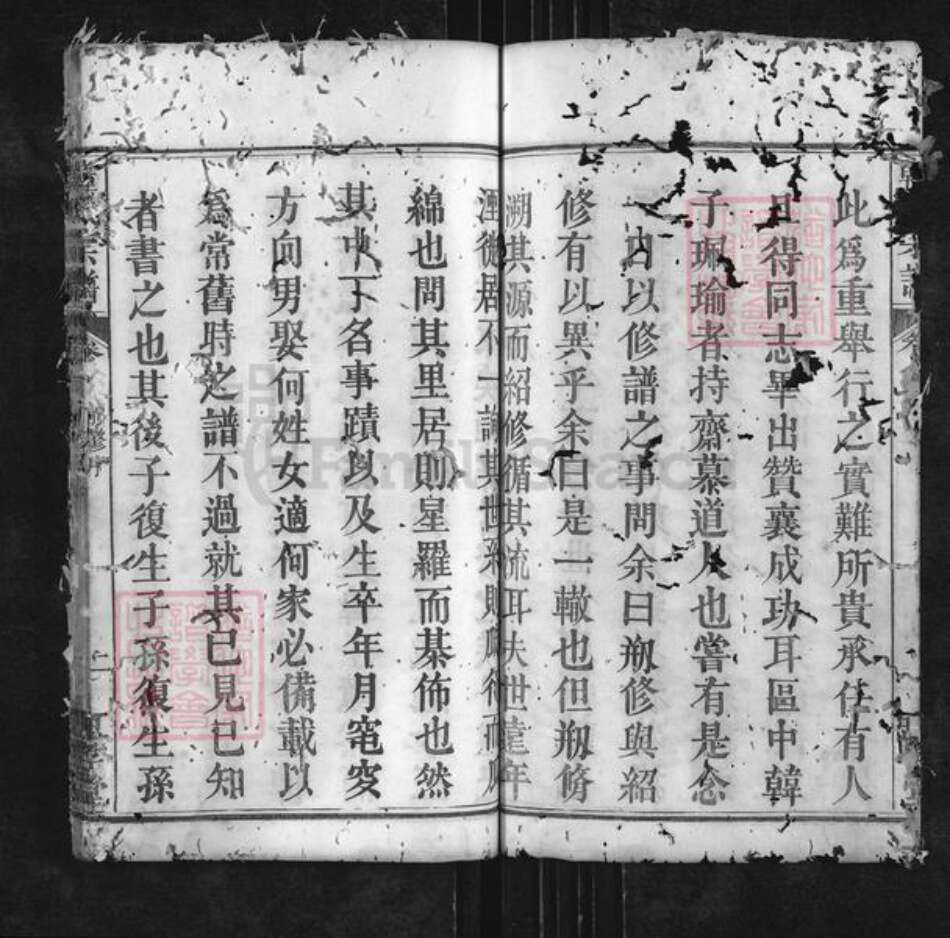 此爲重舉行之實難所貴承任有人
且得同志畢出贊襄成功耳區中韓
子珮瑜者持齋慕道人也嘗有是念
一日以修譜之事問余曰剏修與紹
修有以異乎余曰是一轍也但剏脩
溯其源而紹修循其流耳夫世遠年
湮徙居不一詢其世系則
綿也問其里居則星羅而棊佈也然
其中一卜名事蹟以及生卒年月窀穸
方向男娶何姓女適何家必備載以
爲常舊時之譜不過就其已見已知
者書之也其後子復生子孫復生孫
宗譜
FamilySearch